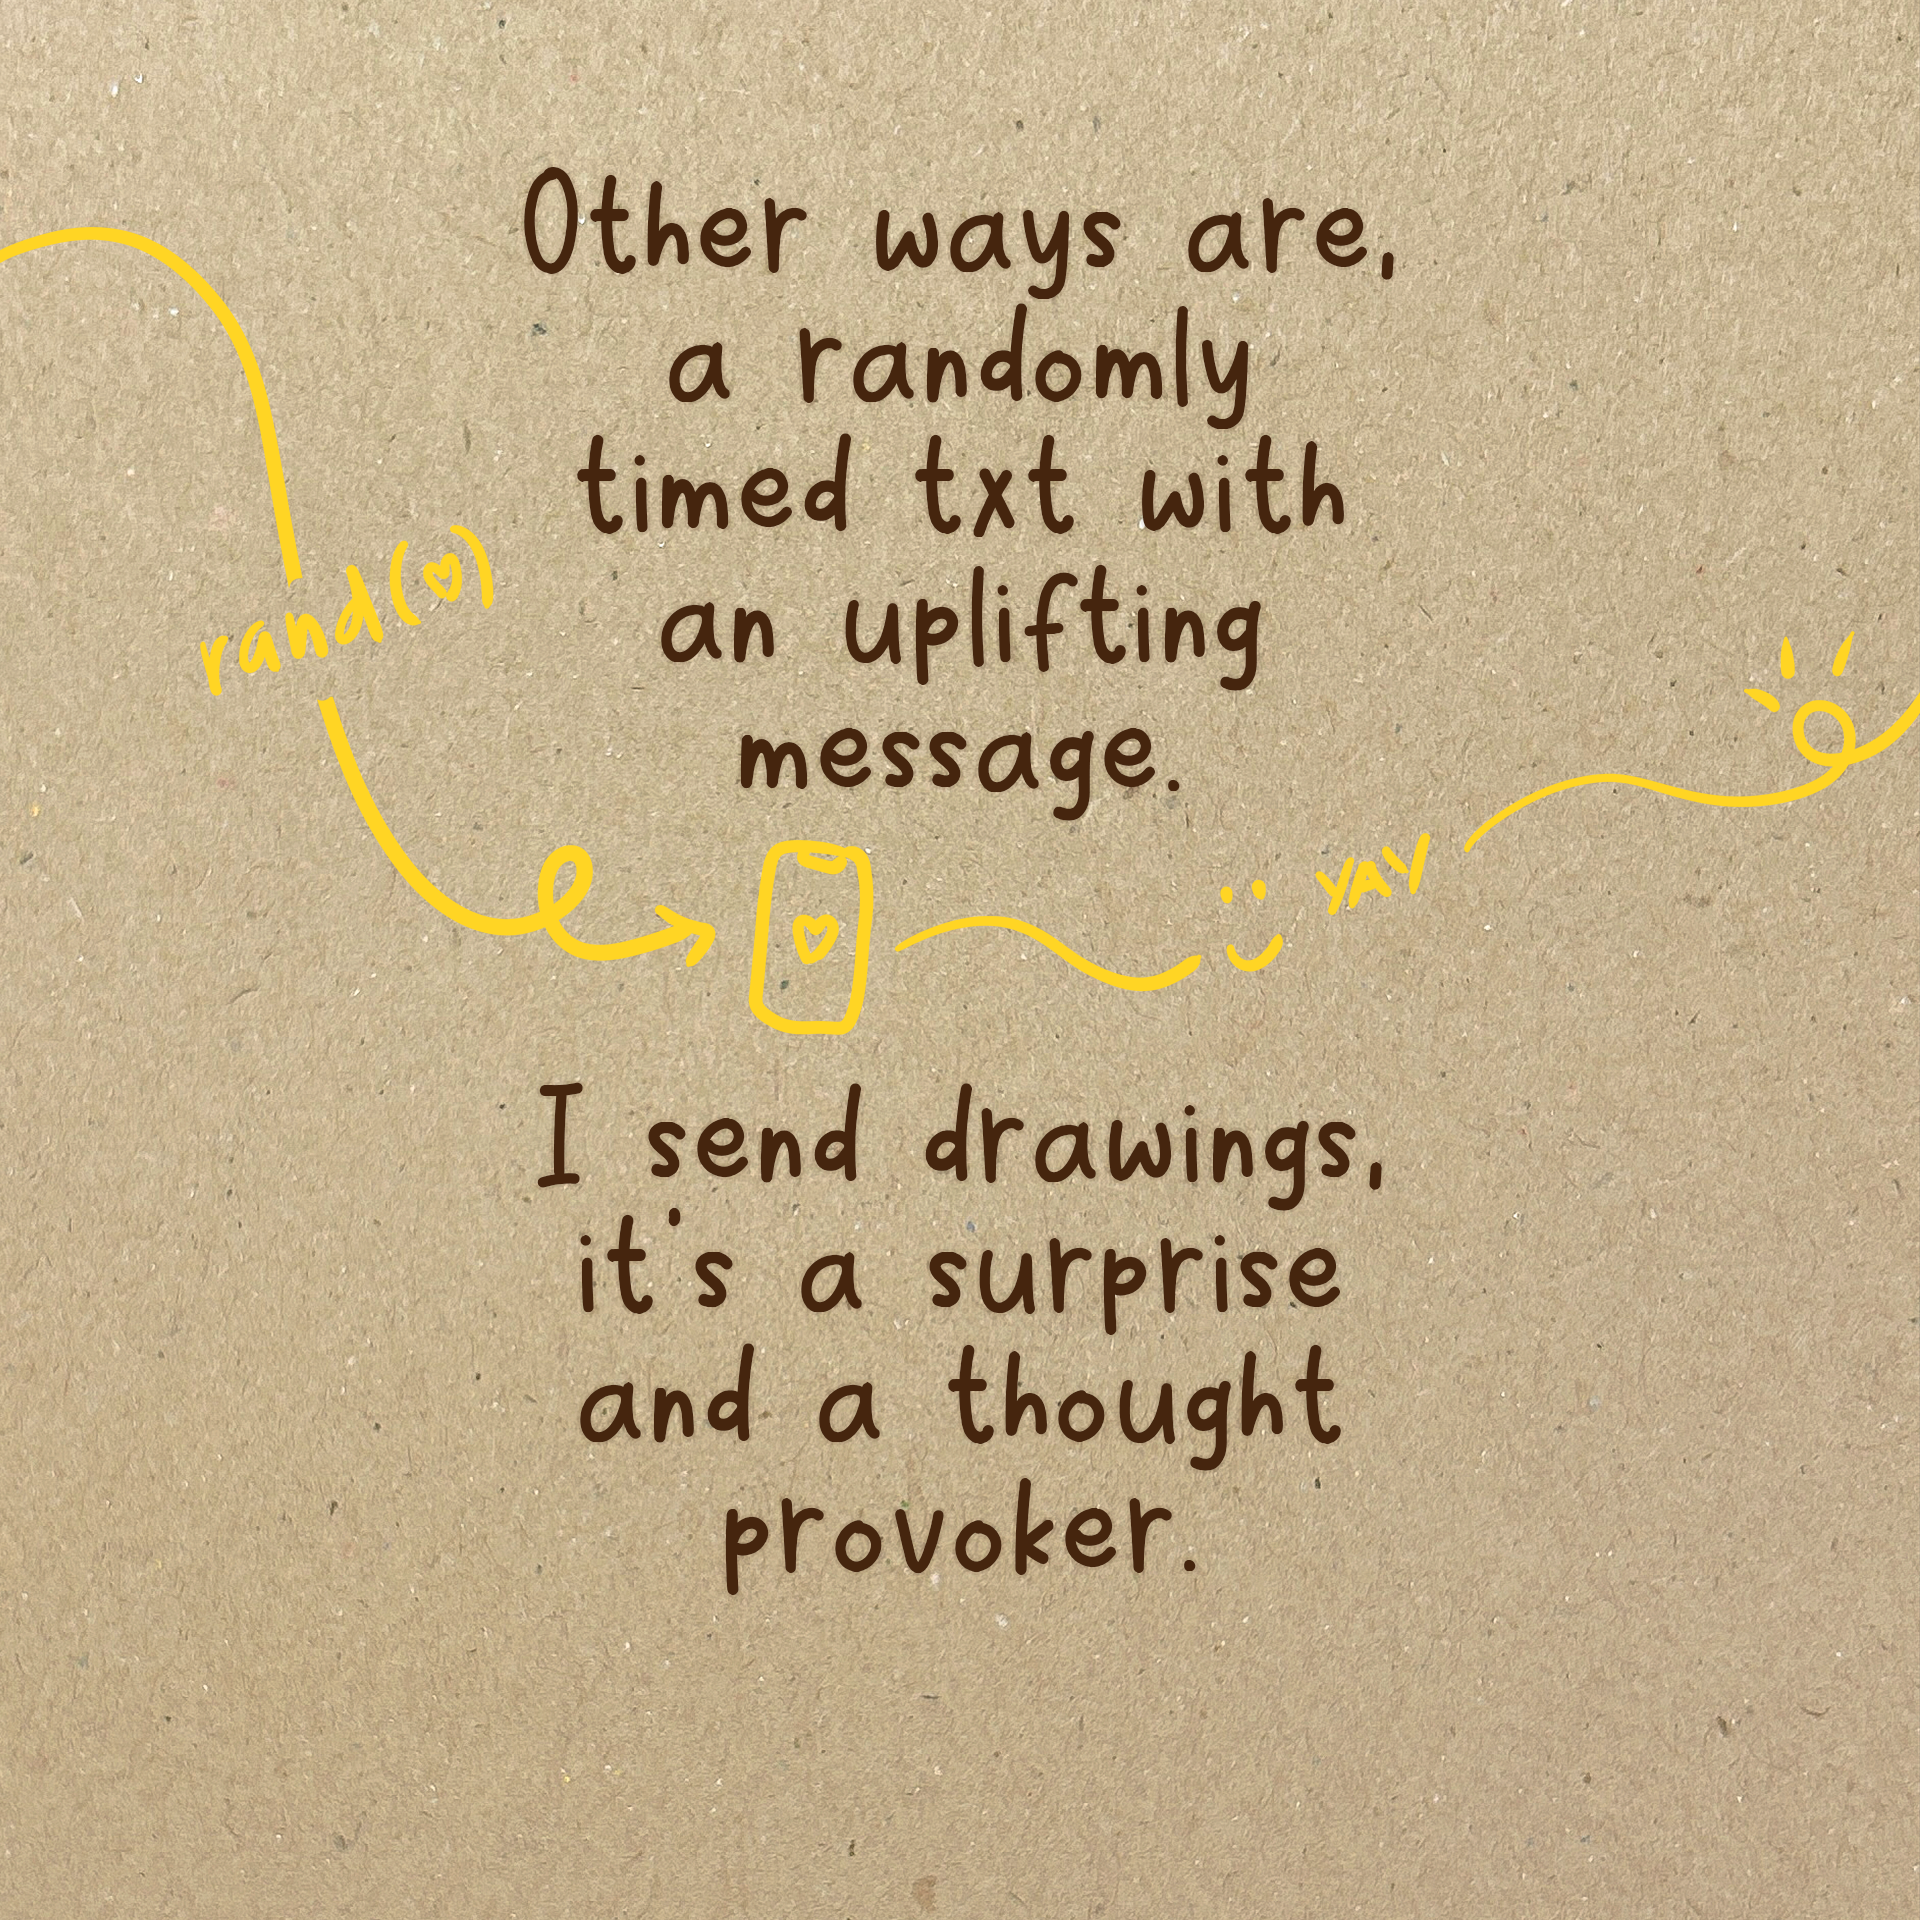 Other ways are,
a randomly
timed txt with
an uplifting
message.
rand(♡)
YAY
I send drawings,
it's a surprise
and a thought
provoker.